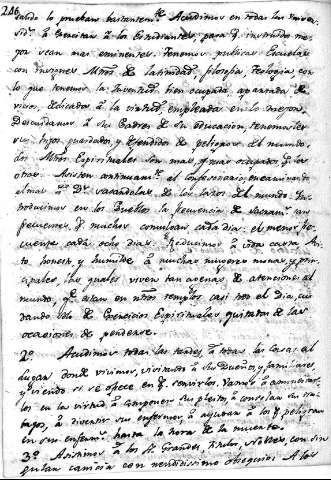 246
tando lo prueban bastantemte. Acudimos en todas las Univer
sides. a exercitar a los Estudiantes, para q. inventado me
jor sean mas eminentes: tenemos publicas Escuelas
con insignes Mros. de latinidad, filosofia, Teologia con
lo que tenemos la Juventud bien ocupada, apartada de
vicios, dedicados à la virtud, empleada en lo mejor.
Descuidamos a sus Padres de su educacion, tenemosles
sus hijos guardados, y defendidos de peligros del mundo.
dos Mros. Espirituales son mas, y mas ocupados q. los
otros. Asisten continuamte. el confesonario, encaminando
almas a Ds. sacandolas de los lazos del mundo. In
troducimos en los Pueblos la frecuencia de Sacramtos. tan
frecuente q. muchos comulgan cada dia: el menos fre
cuente cada ocho dias. Reducimos à vida casta, San
ta, honesta y humilde à muchas mugeres mozas, y prin
cipales, las quales viven tan agenas de atenciones al
mundo, qe. estan en ntros templos casi todo el dia, cui
dando solo de Exercicios Espirituales quitados de las
ocasiones de perderse.
2o. Acudimos todas las tardes, à todas las casas del
lugar donde vivimos, visitando à sus Dueños, y familiares,
y viendo si se ofrece en q. servirlos. Vamos à aumentar
los en la virtud à componer sus pleitos, à consolar sus tra
bajos, à divertir sus enfermos, à ayudar à los q. peligran
en sus enfermds. hasta la hora de la muerte.
3o. Asistimos à los Sres. Grandes, Titulos, Nobles, con sin
gular caricia con rendidissimo obsequio. A los